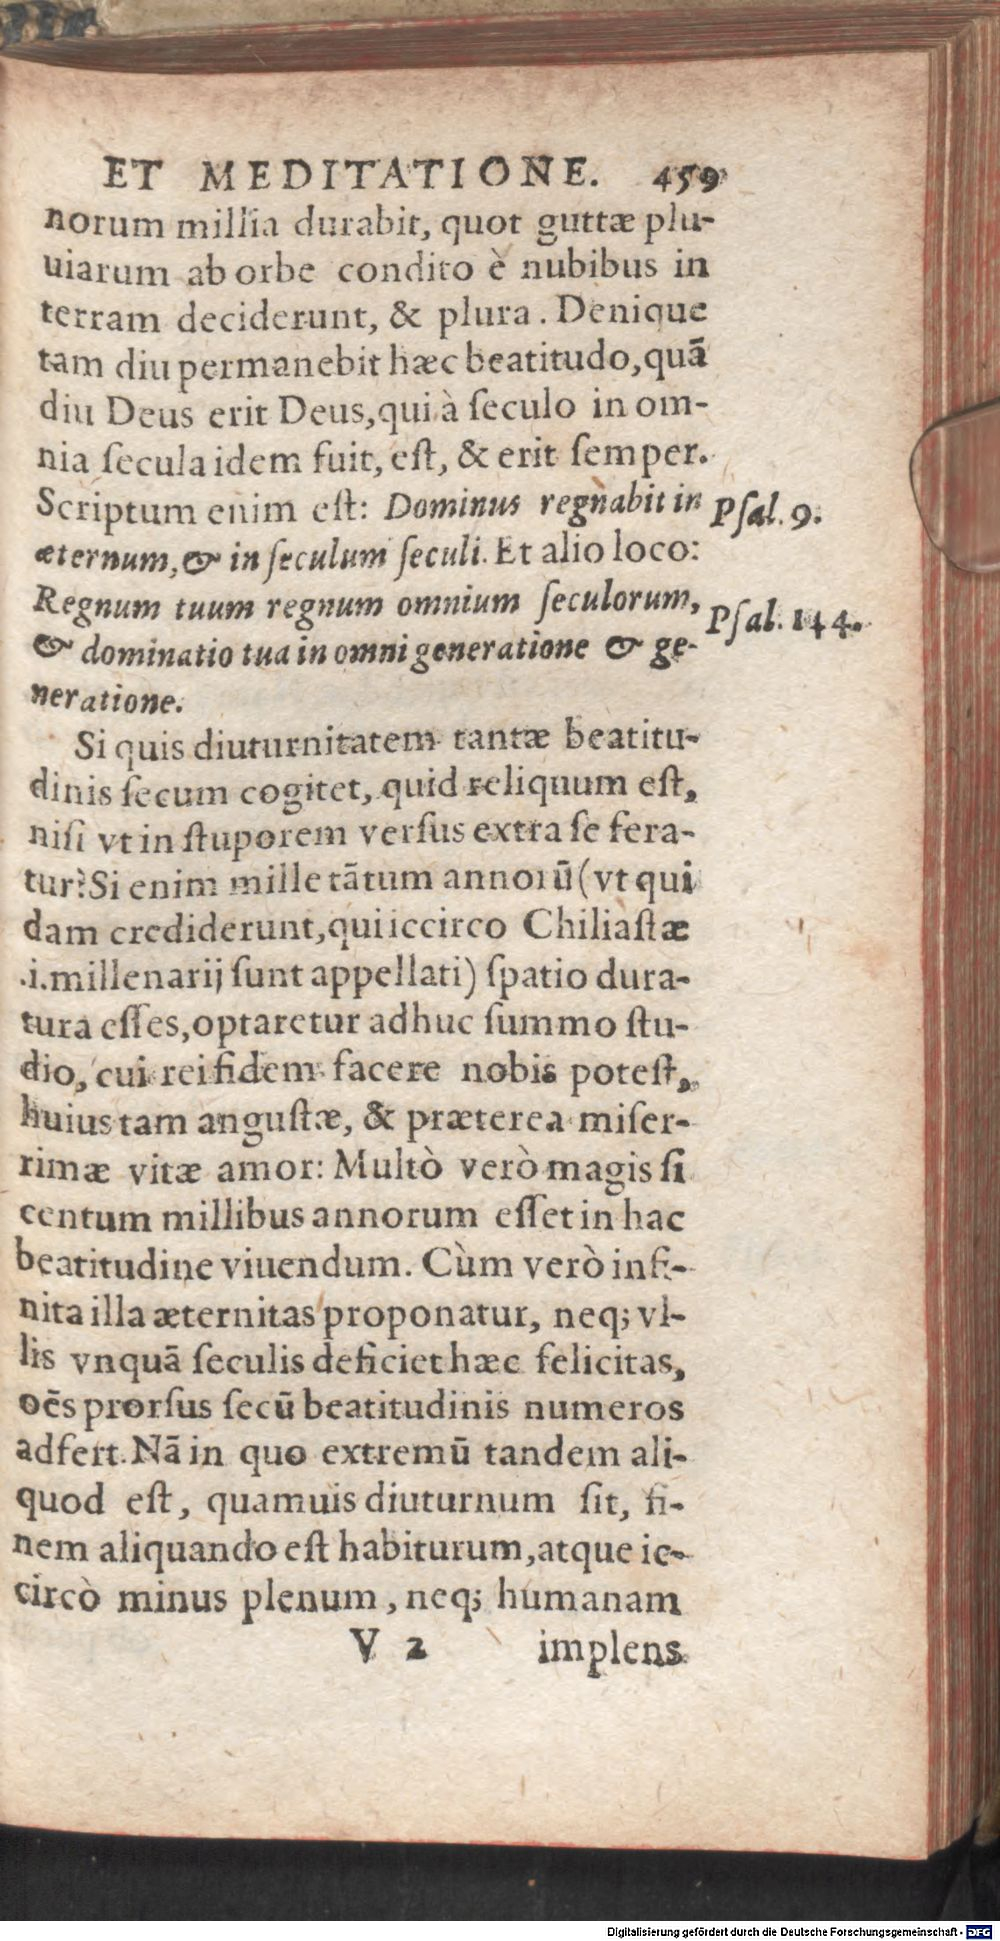 ET MEDITATIONE. 459
norum millia durabit, quot guttæ plu-
uiarum ab orbe condito è nubibus in
terram deciderunt, & plura. Denique
tam diu permanebit hæc beatitudo, quā
diu Deus erit Deus, qui à ſeculo in om-
nia ſecula idem fuit, eſt, & erit ſemper.
Scriptum enim eſt: Dominus regnabit in
Pſal. 9.
æternum, & in ſeculum ſeculi. Et alio loco:
Regnum tuum regnum omnium ſeculorum,
Pſal. 144.
& dominatio tua in omni generatione & ge-
neratione.
Si quis diuturnitatem tantæ beatitu-
dinis ſecum cogitet, quid reliquum eſt,
niſi vt in ſtuporem verſus extra ſe fera-
tur? Si enim mille tātum annorū (vt qui
dam crediderunt, qui iccirco Chiliaſtæ
.i. millenarij ſunt appellati) ſpatio dura-
tura eſſes, optaretur adhuc ſummo ſtu-
dio, cui rei fidem facere nobis poteſt,
huius tam anguſtæ, & præterea miſer-
rimæ vitæ amor: Multò verò magis ſi
centum millibus annorum eſſet in hac
beatitudine viuendum. Cùm verò infi-
nita illa æternitas proponatur, neq; vl-
lis vnquā ſeculis deficiet hæc felicitas,
oēs prorſus ſecū beatitudinis numeros
adfert. Nā in quo extremū tandem ali-
quod eſt, quamuis diuturnum ſit, fi-
nem aliquando eſt habiturum, atque ic-
circò minus plenum, neq; humanam
V 2 implens
Digitalisierung gefördert durch die Deutsche Forschungsgemeinschaft - DFG